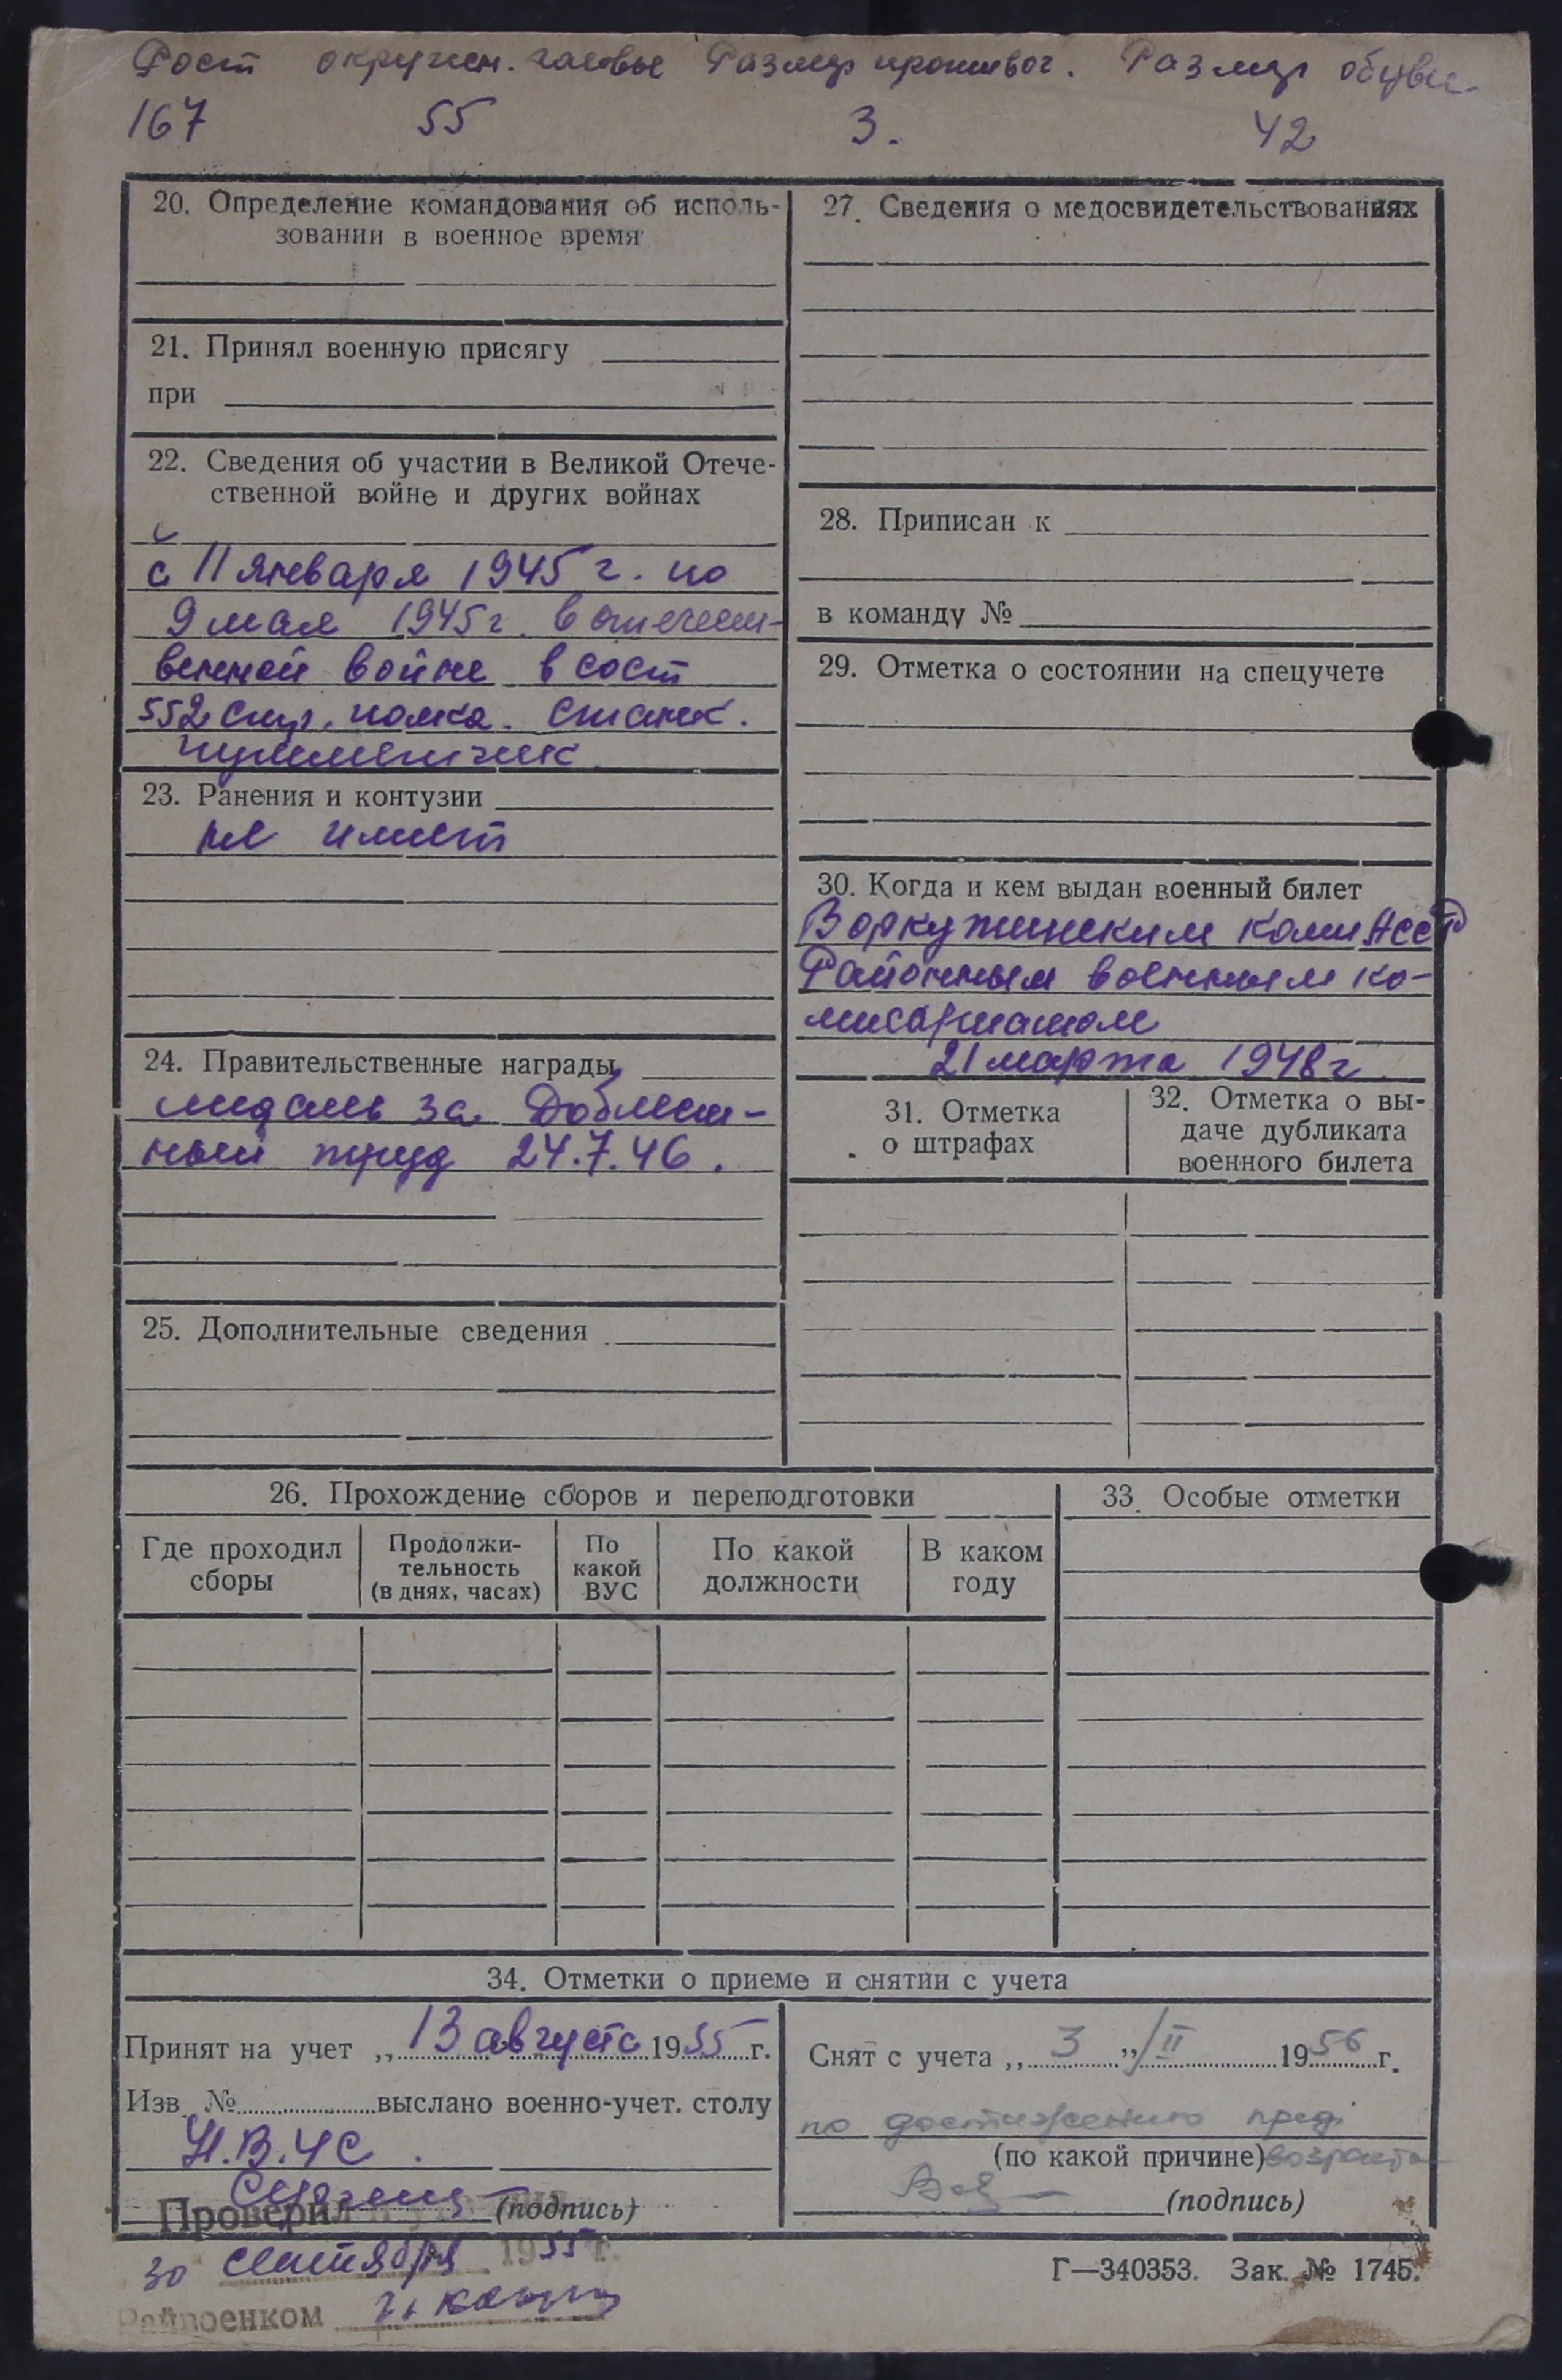 Рост окружн. головы Размер противог. Размер обуви
167 55 3. 42
20. Определение командования об исполь-
зовании в военное время
21. Принял военную присягу
при
22. Сведения об участии в Великой Отече-
ственной войне и других войнах
с 11 января 1945 г. по
9 мая 1945 г. в отечест-
венной войне в сост
552 стр. полка. станк.
пулеметчик
23. Ранения и контузии
не имеет
24. Правительственные награды
медаль за Доблест-
ный труд 24.7.46.
25. Дополнительные сведения
27. Сведения о медосвидетельствованиях
28. Приписан к
в команду №
29. Отметка о состоянии на спецучете
30. Когда и кем выдан военный билет
Воркутинским Коми АССР
Районным военным ко-
мисариатом
21 марта 1948 г.
31. Отметка
о штрафах
32. Отметка о вы-
даче дубликата
военного билета
26. Прохождение сборов и переподготовки
Где проходил
сборы
Продолжи-
тельность
(в днях, часах)
По
какой
ВУС
По какой
должности
В каком
году
33. Особые отметки
34. Отметки о приеме и снятии с учета
Принят на учет „ 13 августа 1955 г.
Изв. № выслано военно-учет. столу
(подпись)
Снят с учета „ 3 ” II 1956 г.
по достижению пред.
(по какой причине) возраста
(подпись)
Проверил
30 сентября 1955 г.
Райвоенком
Г—340353. Зак. № 1745.